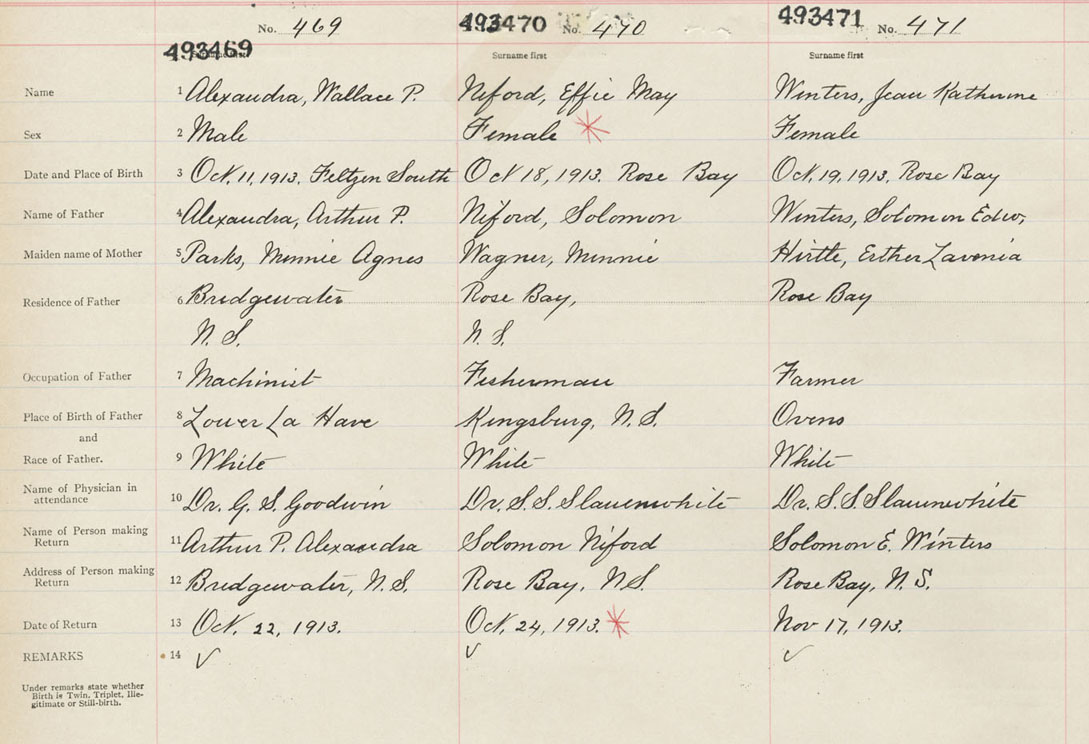 No. 469 493470 No. 470 493471 No. 471
493469 Surname first Surname first
Name 1 Alexandra, Wallace P. Niford, Effie May Winters, Jean Katherine
Sex 2 Male Female Female
Date and Place of Birth 3 Oct. 11, 1913. Feltzen South Oct 18, 1913. Rose Bay Oct. 19, 1913, Rose Bay
Name of Father 4 Alexandra, Arthur P. Niford, Solomon Winters, Solomon Edw.
Maiden name of Mother 5 Parks, Minnie Agnes Wagner, Minnie Hirtle, Esther Lavenia
Residence of Father 6 Bridgewater Rose Bay, Rose Bay
N. S. N. S.
Occupation of Father 7 Machinist Fisherman Farmer
Place of Birth of Father 8 Lower La Have Kingsburg, N. S. Ovens
and
Race of Father. 9 White White White
Name of Physician in
attendance 10 Dr. G. S. Goodwin Dr. S. S. Slauenwhite Dr. S. S. Slauenwhite
Name of Person making
Return 11 Arthur P. Alexandra Solomon Niford Solomon E. Winters
Address of Person making
Return 12 Bridgewater, N. S. Rose Bay, N. S. Rose Bay, N. S.
Date of Return 13 Oct. 22, 1913. Oct. 24, 1913. Nov 17, 1913.
REMARKS 14 ✓ ✓ ✓
Under remarks state whether
Birth is Twin, Triplet, Ille-
gitimate or Still-birth.